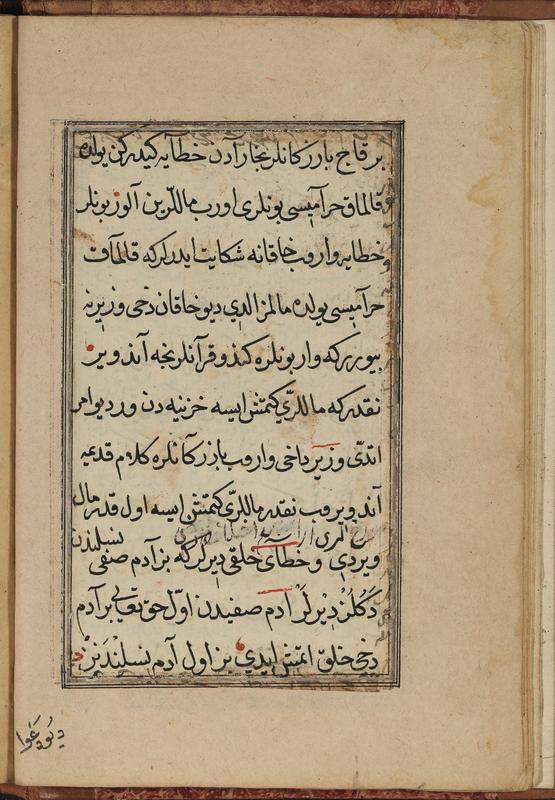 بر قاج بازركانلر بخارادن خطايه كيدركن يولده
قالماق حراميسى بونلرى اورب ماللرين آلور بونلر
خطايه واروب خاقانه شكايت ايدرلر كه قالماق
حراميسى يولده مالمز الدى ديو خاقان دخى وزيرنه
بيورر كه وار بونلره كندو قرآنلرنجه آند وير
نقدر كه ماللرى كتمش ايسه خزينه دن ور ديو امر
اتدى وزير داخى واروب بازركانلره كلام قديمه
آند ويروب نقدر ماللرى كتمش ايسه اول قدر مال
ويردى و خطاى خلقى ديرلر كه بز آدم صفى نسلندن
دكلز ديرلر آدم صفيدن اول حق تعالى بر آدم
دخى خلق اتمش ايدى بز اول آدم نسلندنز
ديو دعوا